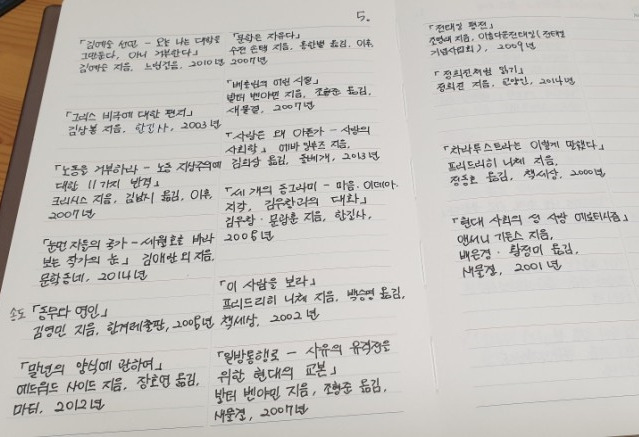 5.
「김예슬 선언 - 오늘 나는 대학을
그만둔다, 아니 거부한다」
김예슬 지음, 느린걸음, 2010년
「그리스 비극에 대한 편지」
김상봉 지음, 한길사, 2003년
「노동을 거부하라 - 노동 지상주의에
대한 11가지 반격」
크리시스 지음, 김남시 옮김, 이후,
2007년
「눈먼 자들의 국가 - 세월호를 바라
보는 작가의 눈」 김애란 외 지음,
문학동네, 2014년
「동무와 연인」
김영민 지음, 한겨레출판, 2008년
「말년의 양식에 관하여」
에드워드 사이드 지음, 장호연 옮김,
마티, 2012년
「문학은 자유다」
수전 손택 지음, 홍한별 옮김, 이후,
2007년
「베를린의 어린 시절」
발터 벤야민 지음, 조형준 옮김,
새물결, 2007년
「사랑은 왜 아픈가 - 사랑의
사회학」 에바 일루즈 지음,
김희상 옮김, 돌베개, 2013년
「세 개의 동그라미 - 마음·이데아·
지각, 김우창과의 대화」
김우창·문광훈 지음, 한길사,
2008년
「이 사람을 보라」
프리드리히 니체 지음, 백승영 옮김,
책세상, 2002년
「일방통행로 - 사유의 유격전을
위한 현대의 교본」
발터 벤야민 지음, 조형준 옮김,
새물결, 2007년
「전태일 평전」
조영래 지음, 아름다운전태일(전태일
기념사업회), 2009년
「정희진처럼 읽기」
정희진 지음, 교양인, 2014년
「차라투스트라는 이렇게 말했다」
프리드리히 니체 지음,
정동호 옮김, 책세상, 2000년
「현대 사회의 성 사랑 에로티시즘」
앤서니 기든스 지음,
배은경·황정미 옮김,
새물결, 2001년